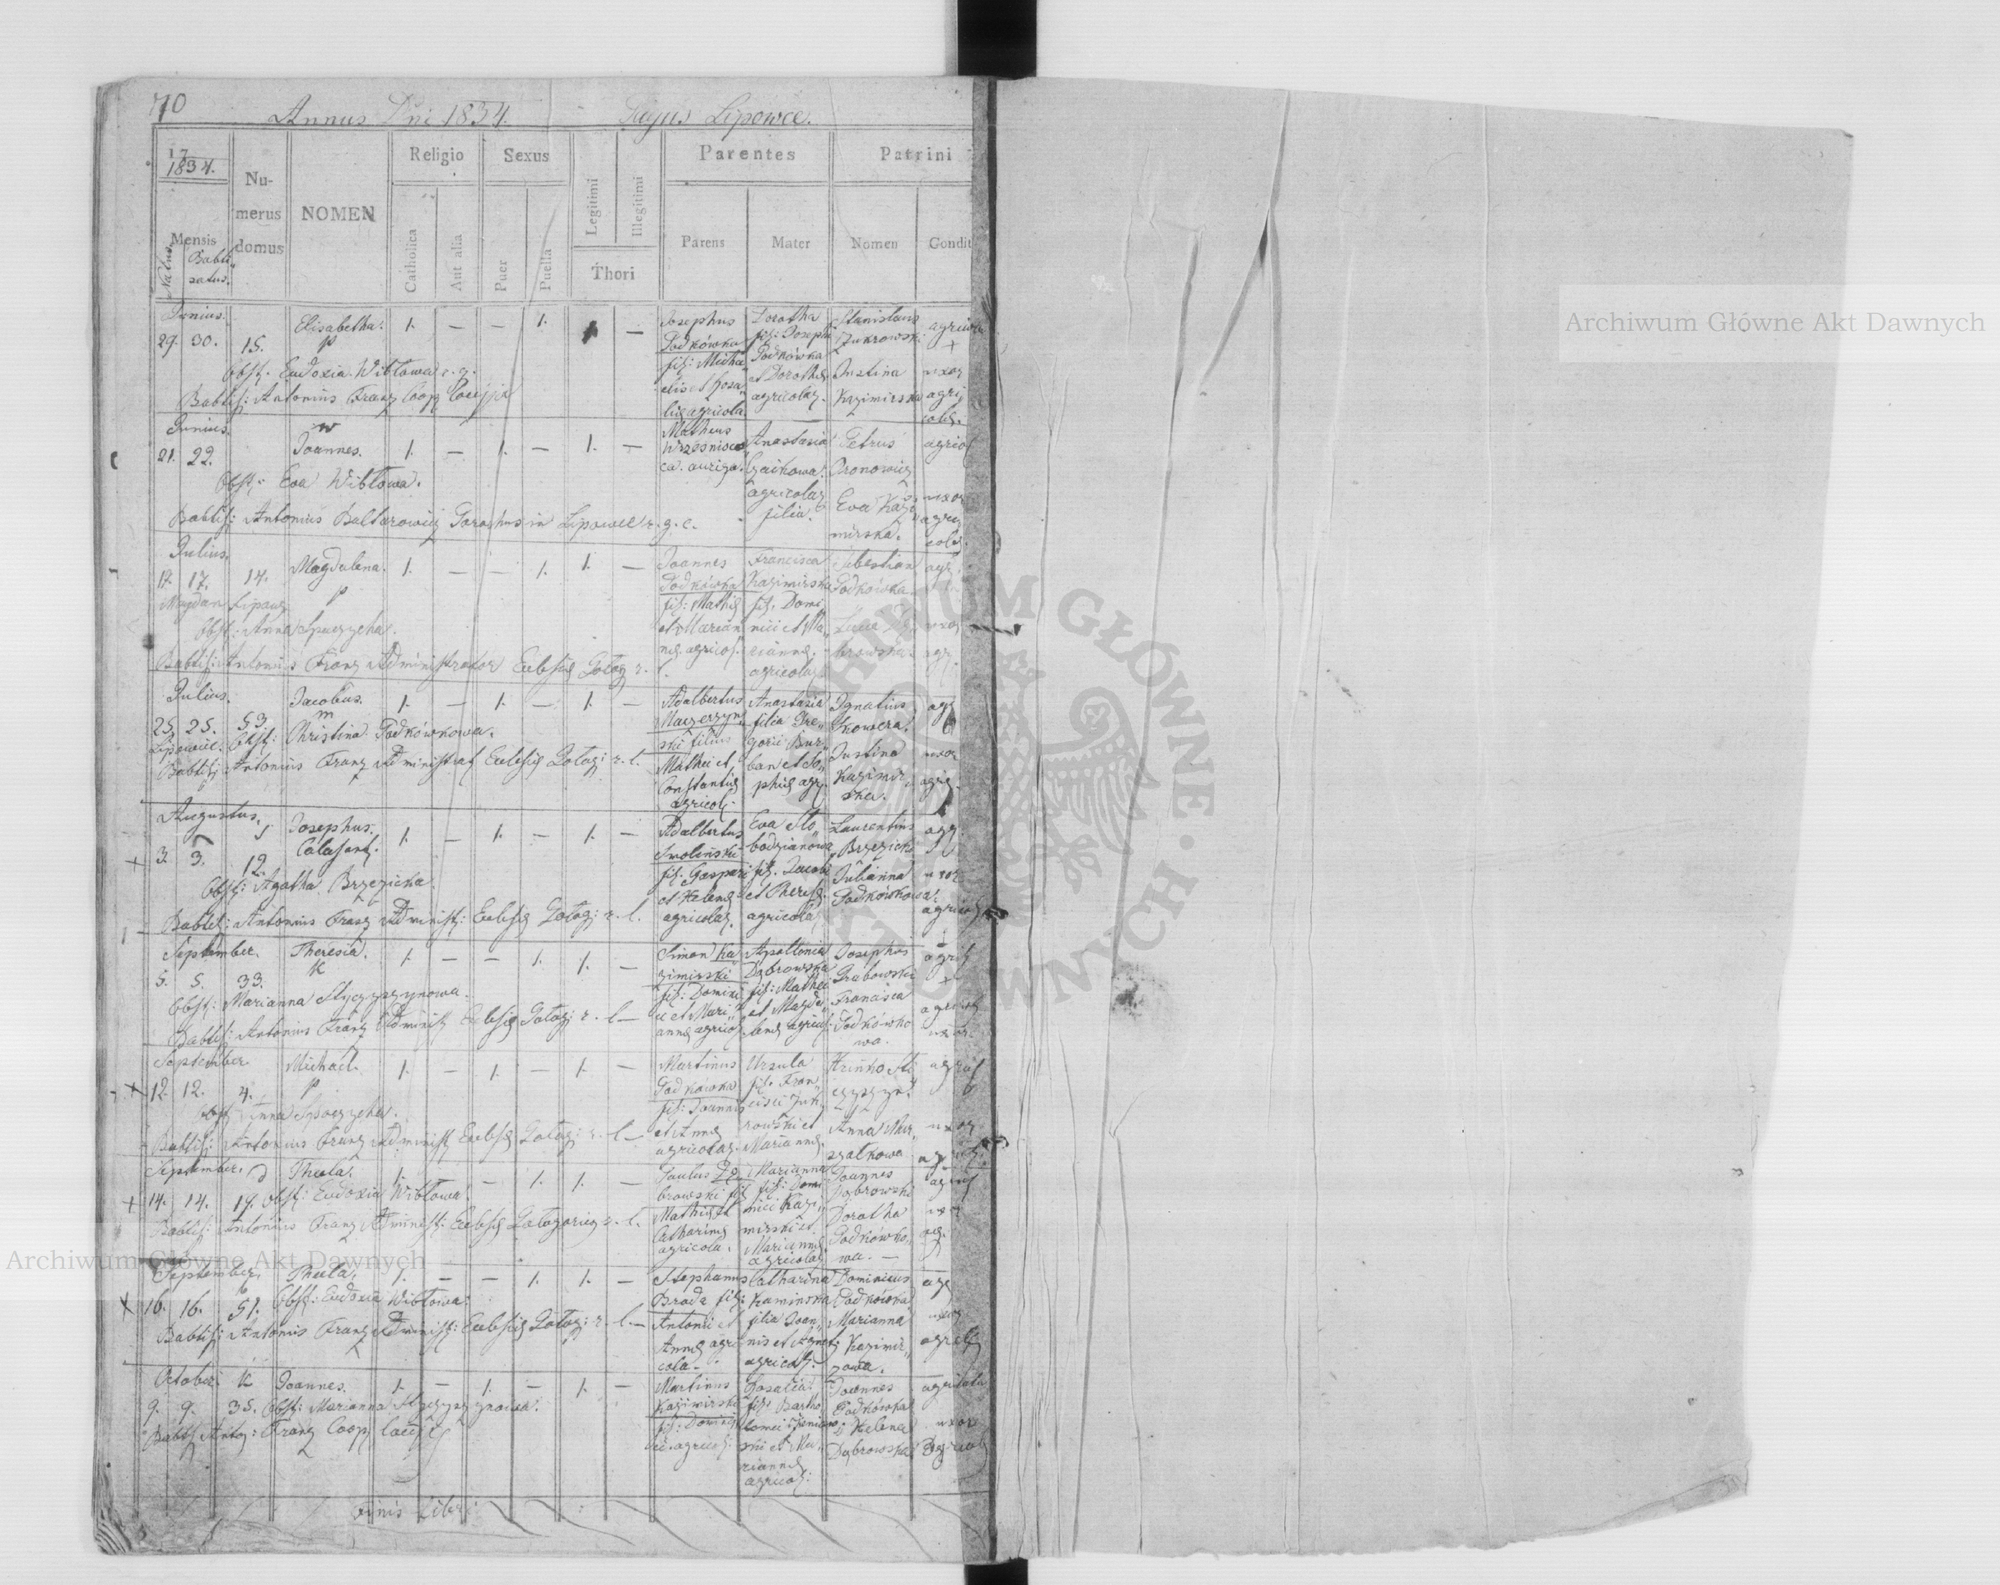 70
Annus Dni 1834. Pagus Lipowce.
17
1834.
Mensis
Natus.
Babti-
satus.
Nu-
merus
domus
NOMEN
Religio
Catholica
Aut alia
Sexus
Puer
Puella
Legitimi
Illegitimi
Thori
Parentes
Parens
Mater
Patrini
Nomen
Condit
Junius.
29. 30. 15. Elisabetha. 1. — — 1. —
Obst. Eudoxia Wibtowa r. g.
Babtis: Antonius Franz Coop
Josephus
Podkówka
fil: Micha
elis et Rosa
liæ agricola
Dorotha
fil: Josephi
Podkówka
et Dorothea
agricolæ.
Stanislaus
Zukrowski
Justina
Kazimirska
agricola
+
uxor
agri
colæ.
Junius.
21. 22. Joannes. 1. — 1. — 1. —
Obst: Eva Wibtowa.
Babtis: Antonius Baltarowicz Parochus in Lipowce r. g. c.
Matheus
auriga.
Anastasia
agricolæ
filia.
Petrus
Aronowicz
Eva Kazi
mirska.
agricol
uxor
agri
colæ.
Julius.
17. 17. 14. Magdalena. 1. — — 1. 1. —
Obst: Anna Spaczycha.
Babtis: Antonius Franz Administrator Eclesiæ Gołog r. l.
Joannes
Podkówka
fil: Mathiæ
et Marian
næ agricol.
Francisca
Kazimirska
fil. Domi
nici et Ma
riannæ
agricolæ
Sebestian
Podkówka
browska.
agr.
uxor
agr.
Julius.
25. 25. 53. Jacobus. 1. — 1. — 1. —
Lipowce. Obst: Christina Podkówkowa.
Babtis: Antonius Franz Administrat Eclesiæ Gołog: r. l.
Adalbertus
Maczerzyn
ski filius
Mathei et
Constantiæ
agricol.
Anastasia
filia Gre
gorii Bur
ban et So
phiæ agr.
Ignatius
Skowera.
Justina
Kazimir
ska.
agr
uxor
agric.
Augustus.
+ 3. 3. 12. Josephus. 1. — 1. — 1. —
Calasant.
Obst: Agatha Brzezicka.
Babtis: Antonius Franz Administ: Eclesiæ Gołog: r. l.
Adalbertus
Smoleński
fil. Gaspari
et Helenæ
agricolæ.
Eva Sło
bodzianowa
fil. Jacobi
et Theresæ
agricolæ
Laurentius
Brzezicki
Julianna
Podkówkowa
agr.
uxor
agricol
September.
5. 5. 33. Theresia. 1. — — 1. 1. —
K
Obst: Marianna Styczyszynowa.
Babtis: Antonius Franz Administ Eclesiæ Gołog: r. l. —
Simon Ka
zimirski
fil: Domini
ci et Mari
annæ agricol.
Apollonia
Dąbrowska
fil: Mathei
et Magda
lenæ agricol.
Josephus
Grabowski
Francisca
Podkówko
wa.
agricol
agricol
uxor.
September
+ 12. 12. 4. Michael. 1. — 1. — 1. —
p
Obst Anna Spaczycha.
Babtis: Antonius Franz Administ Eclesiæ Gołog: r. l. —
Martinus
Podkówka
fil: Joannis
et Annæ
agricolæ.
Ursula
fil. Fran
cisci Zuk
rowski et
Mariannæ.
Hrinko Sti
czyszyn
Anna Mar
szałkowa
agricol
uxor
agricol.
September. D Thecla. 1. — 1. 1. —
+ 14. 14. 17. Obst: Eudoxia Wibtowa.
Babtis: Antonius Franz Administ: Eclesiæ Gołogoriæ r. l.
Paulus Dą
browski fil
Mathiæ et
Catharinæ
agricola.
Marianna
fil: Domi
nici Kazi
mirski et
Mariannæ
agricolæ
Joannes
Dąbrowski
Dorotha
Podkówko
wa. —
agricol
uxor
ag.
September. Thecla. 1. — — 1. 1. —
+ 16. 16. 51. Obst: Eudoxia Wibtowa.
Babtis: Antonius Franz Administ: Eclesiæ Gołog: r. l. —
Stephanus
Broda fil:
Antonii et
Annæ agri
cola. —
Catharina
Kaminska
filia Joan
nis et Agnetis
agricol.
Dominicus
Podkówka
Marianna
Kazimir
zowa.
agr
uxor
agricol
October. K Joannes. 1. — 1. — 1. —
9. 9. 35. Obst: Marianna Styczyszynowa.
Babtis Anton: Franz Coop
Martinus
Kazimirski
fil: Domini
ci agricol.
Rosalia
fil. Bartho
lomei
ski et Ma
riannæ
agricol.
Joannes
Podkówka
Helena
Dąbrowska
agricola
uxor
agricol
Finis Libri
Archiwum Główne Akt Dawnych
Archiwum Główne Akt Dawnych
ARCHIWUM GŁÓWNE AKT DAWNYCH